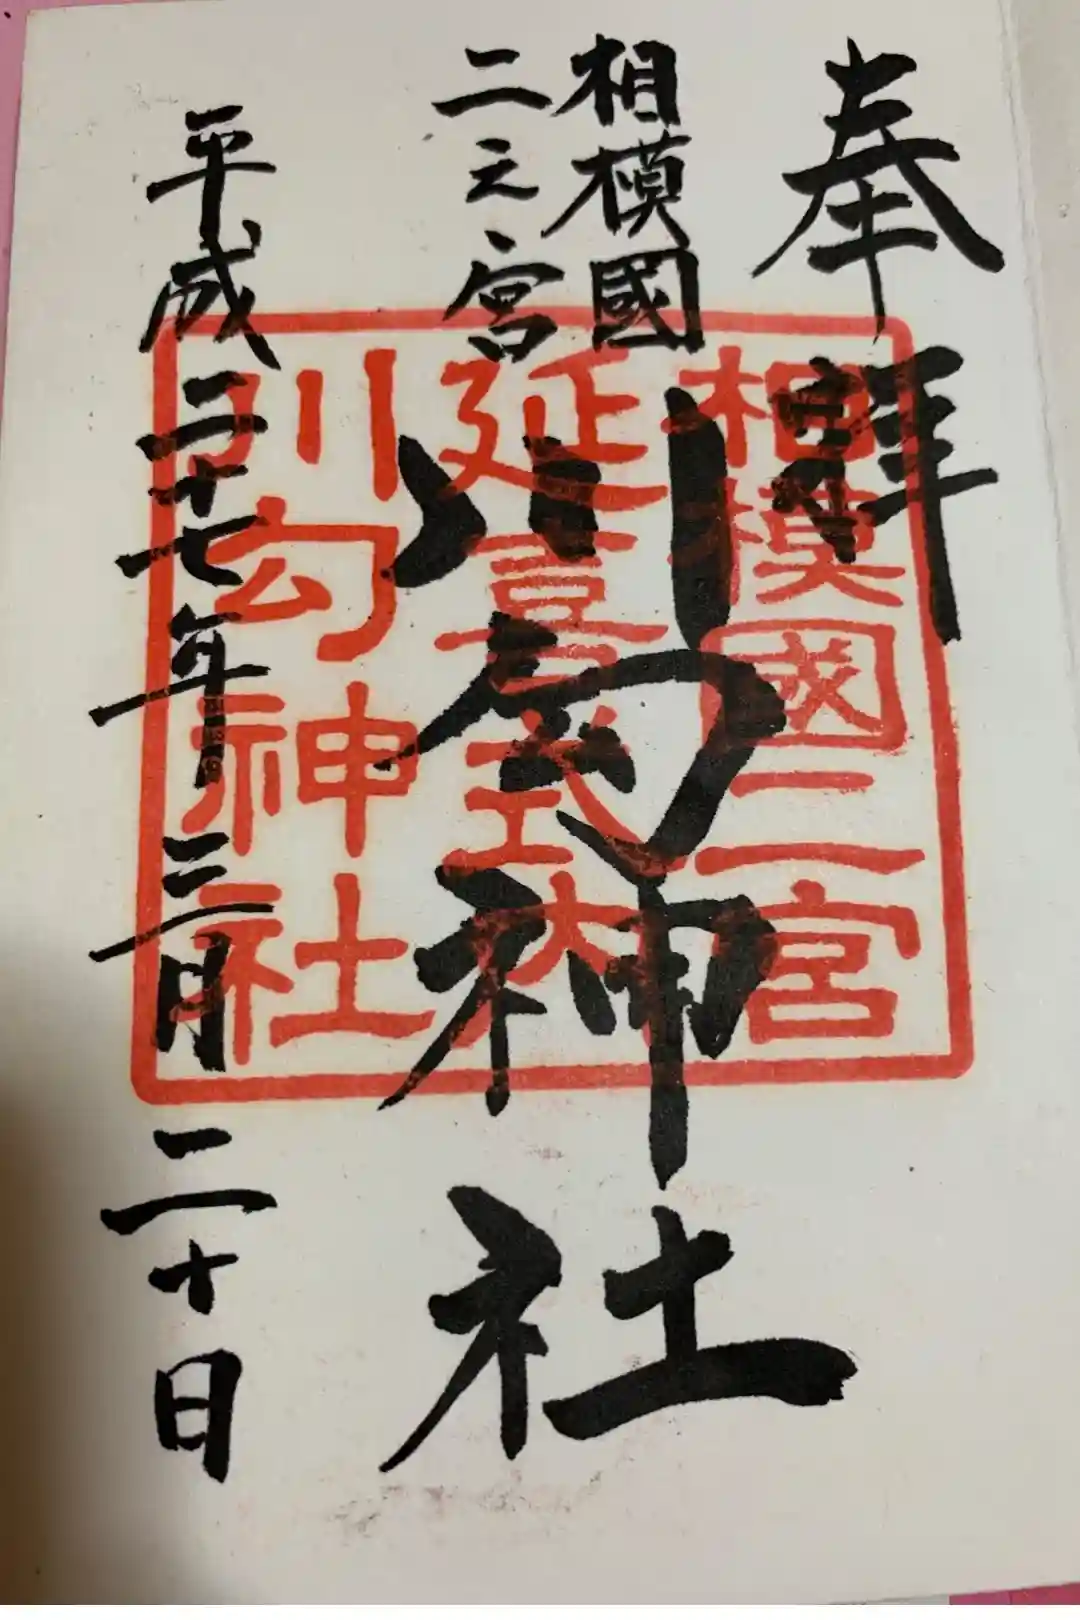 奉拝
相模國
二之宮
川勾神社
平成二十七年三月二十日
相模國二宮
延喜式内
川勾神社